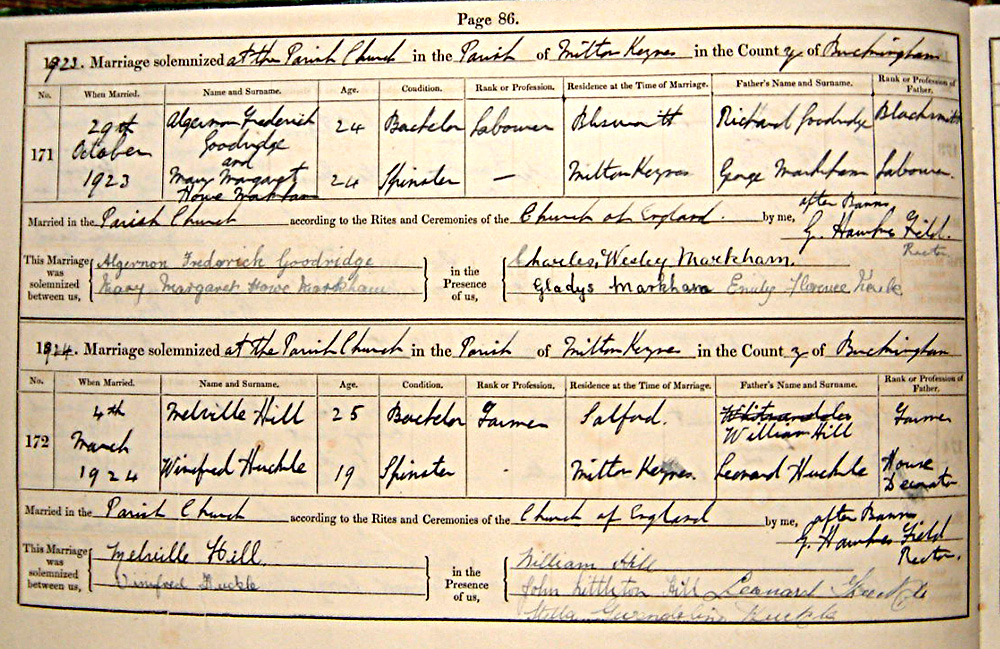 Page 86.
1923. Marriage solemnized at the Parish Church in the Parish of Milton Keynes in the County of Buckingham
No. When Married. Name and Surname. Age. Condition. Rank or Profession. Residence at the Time of Marriage. Father's Name and Surname. Rank or Profession of Father.
171
29th October 1923
Algernon Frederick Goodridge 24 Bachelor Labourer Richard Goodridge Blacksmith
and
Mary Margaret Howe Markham 24 Spinster — Milton Keynes George Markham Labourer.
Married in the Parish Church according to the Rites and Ceremonies of the Church of England. by me, after Banns
G. Hawkes Field.
Rector
This Marriage was solemnized between us,
Algernon Frederick Goodridge
Mary Margaret Howe Markham
in the Presence of us,
Charles, Wesley Markham.
Gladys Markham Emily Florence
1924. Marriage solemnized at the Parish Church in the Parish of Milton Keynes in the County of Buckingham
No. When Married. Name and Surname. Age. Condition. Rank or Profession. Residence at the Time of Marriage. Father's Name and Surname. Rank or Profession of Father.
172
4th March 1924
Melville Hill 25 Bachelor Farmer Salford. William Hill Farmer
Winifred Huckle 19 Spinster - Milton Keynes. Leonard Huckle House Decorator
Married in the Parish Church according to the Rites and Ceremonies of the Church of England by me, after Banns
G. Hawkes Field
Rector.
This Marriage was solemnized between us,
Melville Hill.
Winifred Huckle
in the Presence of us,
William Hill
John Littleton Hill Leonard Huckle
Stella Gwendoline Huckle